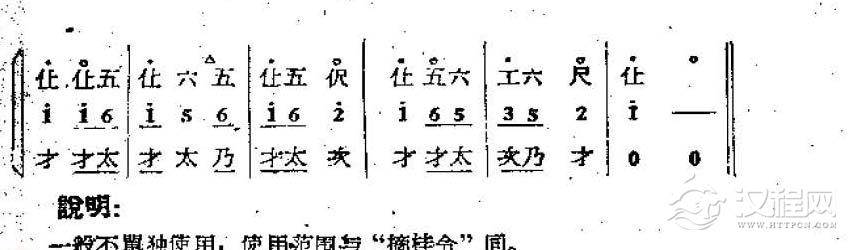 仩 仩五 仩 六 五 仩五 伬 仩 五六 工六 尺 仩
i i 6 i 5 6 i 6 2̇ i 6 5 3 5 2 i —
才 才太 才 太 乃 才太 次 才 才太 次乃 才 0 0
說明:
一般不單独使用，使用范围与“摘桂令”同。
汉程网